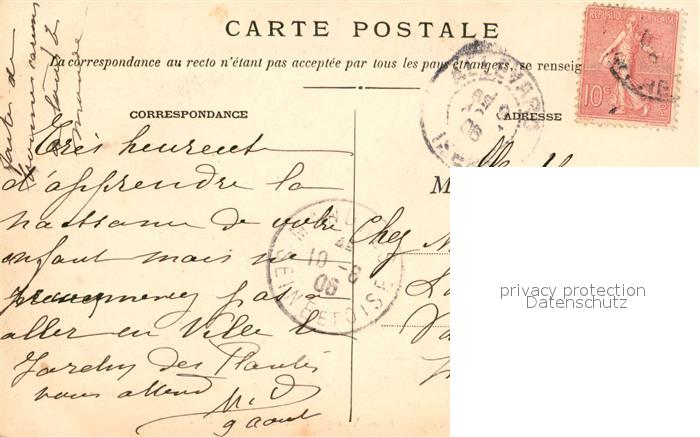 CARTE POSTALE
La correspondance au recto n'étant pas acceptée par tous les pays étrangers, se renseig
CORRESPONDANCE
ADRESSE
REPUBLIQUE FRANÇAISE
10c
ALLEVARD
4E
10 -8
06
SEINE ET OISE
Très heureux
d'apprendre la
naissance de votre
enfant mais ne
pas à
aller en Ville le
Jardin des Plantes
vous attend
9 aout
M
Chez
privacy protection
Datenschutz